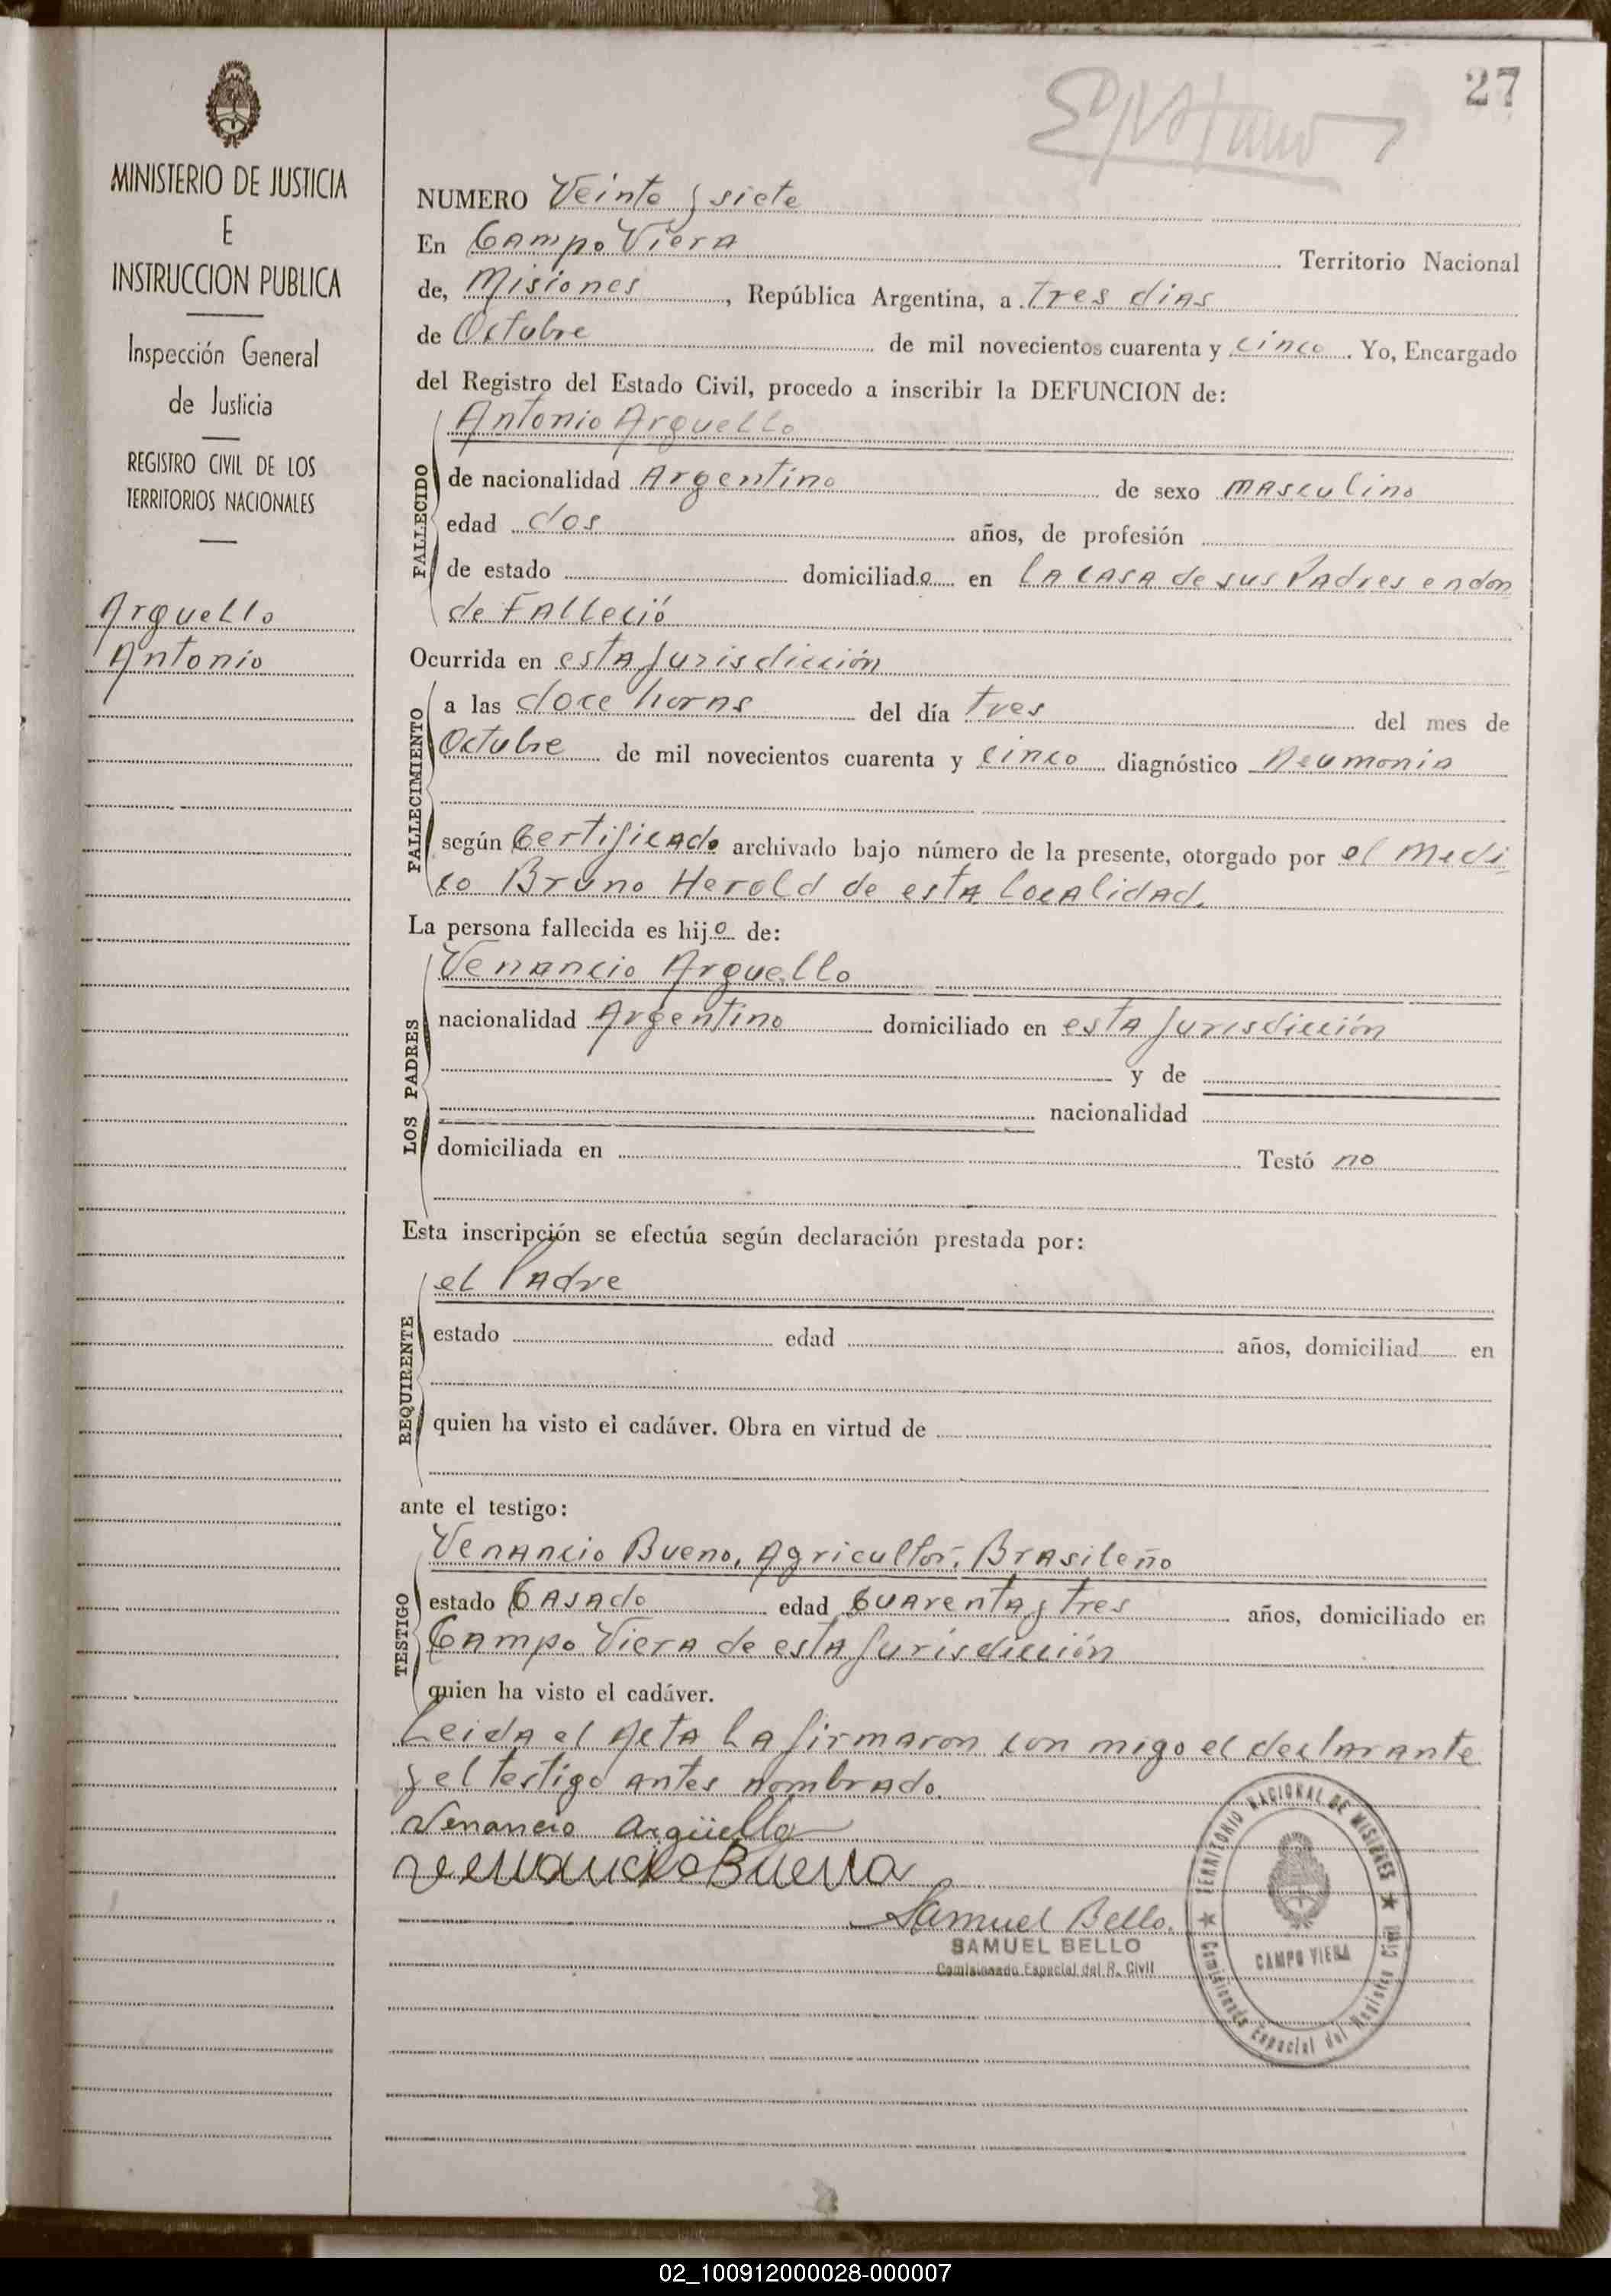 27
MINISTERIO DE JUSTICIA
E
INSTRUCCION PUBLICA
Inspección General
de Justicia
REGISTRO CIVIL DE LOS
TERRITORIOS NACIONALES
Arguello
Antonio
NUMERO Veinte y siete
En Campo Viera Territorio Nacional
de, Misiones, República Argentina, a tres dias
de Octubre de mil novecientos cuarenta y cinco. Yo, Encargado
del Registro del Estado Civil, procedo a inscribir la DEFUNCION de:
Antonio Arguello
FALLECIDO
de nacionalidad Argentino de sexo masculino
edad dos años, de profesión
de estado domiciliado en la casa de sus Padres en don
de Falleció
Ocurrida en esta Jurisdicción
FALLECIMIENTO
a las doce horas del día tres del mes de
Octubre de mil novecientos cuarenta y cinco diagnóstico Neumonia
según Certificado archivado bajo número de la presente, otorgado por el Medi
co Bruno Herold de esta localidad.
La persona fallecida es hijo de:
Venancio Arguello
LOS PADRES
nacionalidad Argentino domiciliado en esta Jurisdicción
y de
nacionalidad
domiciliada en Testó no
Esta inscripción se efectúa según declaración prestada por:
el Padre
REQUIRENTE
estado edad años, domiciliad en
quien ha visto el cadáver. Obra en virtud de
ante el testigo:
Venancio Bueno, Agricultor, Brasileño
TESTIGO
estado Casado edad cuarenta y tres años, domiciliado en
Campo Viera de esta Jurisdicción
quien ha visto el cadáver.
Leida el Acta la firmaron con migo el declarante
y el testigo antes nombrado.
Venancio Argüello
Venancio Buena
Samuel Bello.
SAMUEL BELLO
Comisionado Especial del R. Civil
TERRITORIO NACIONAL DE MISIONES
CAMPO VIERA
Comisionado Especial del Registro Civil
02_100912000028-000007